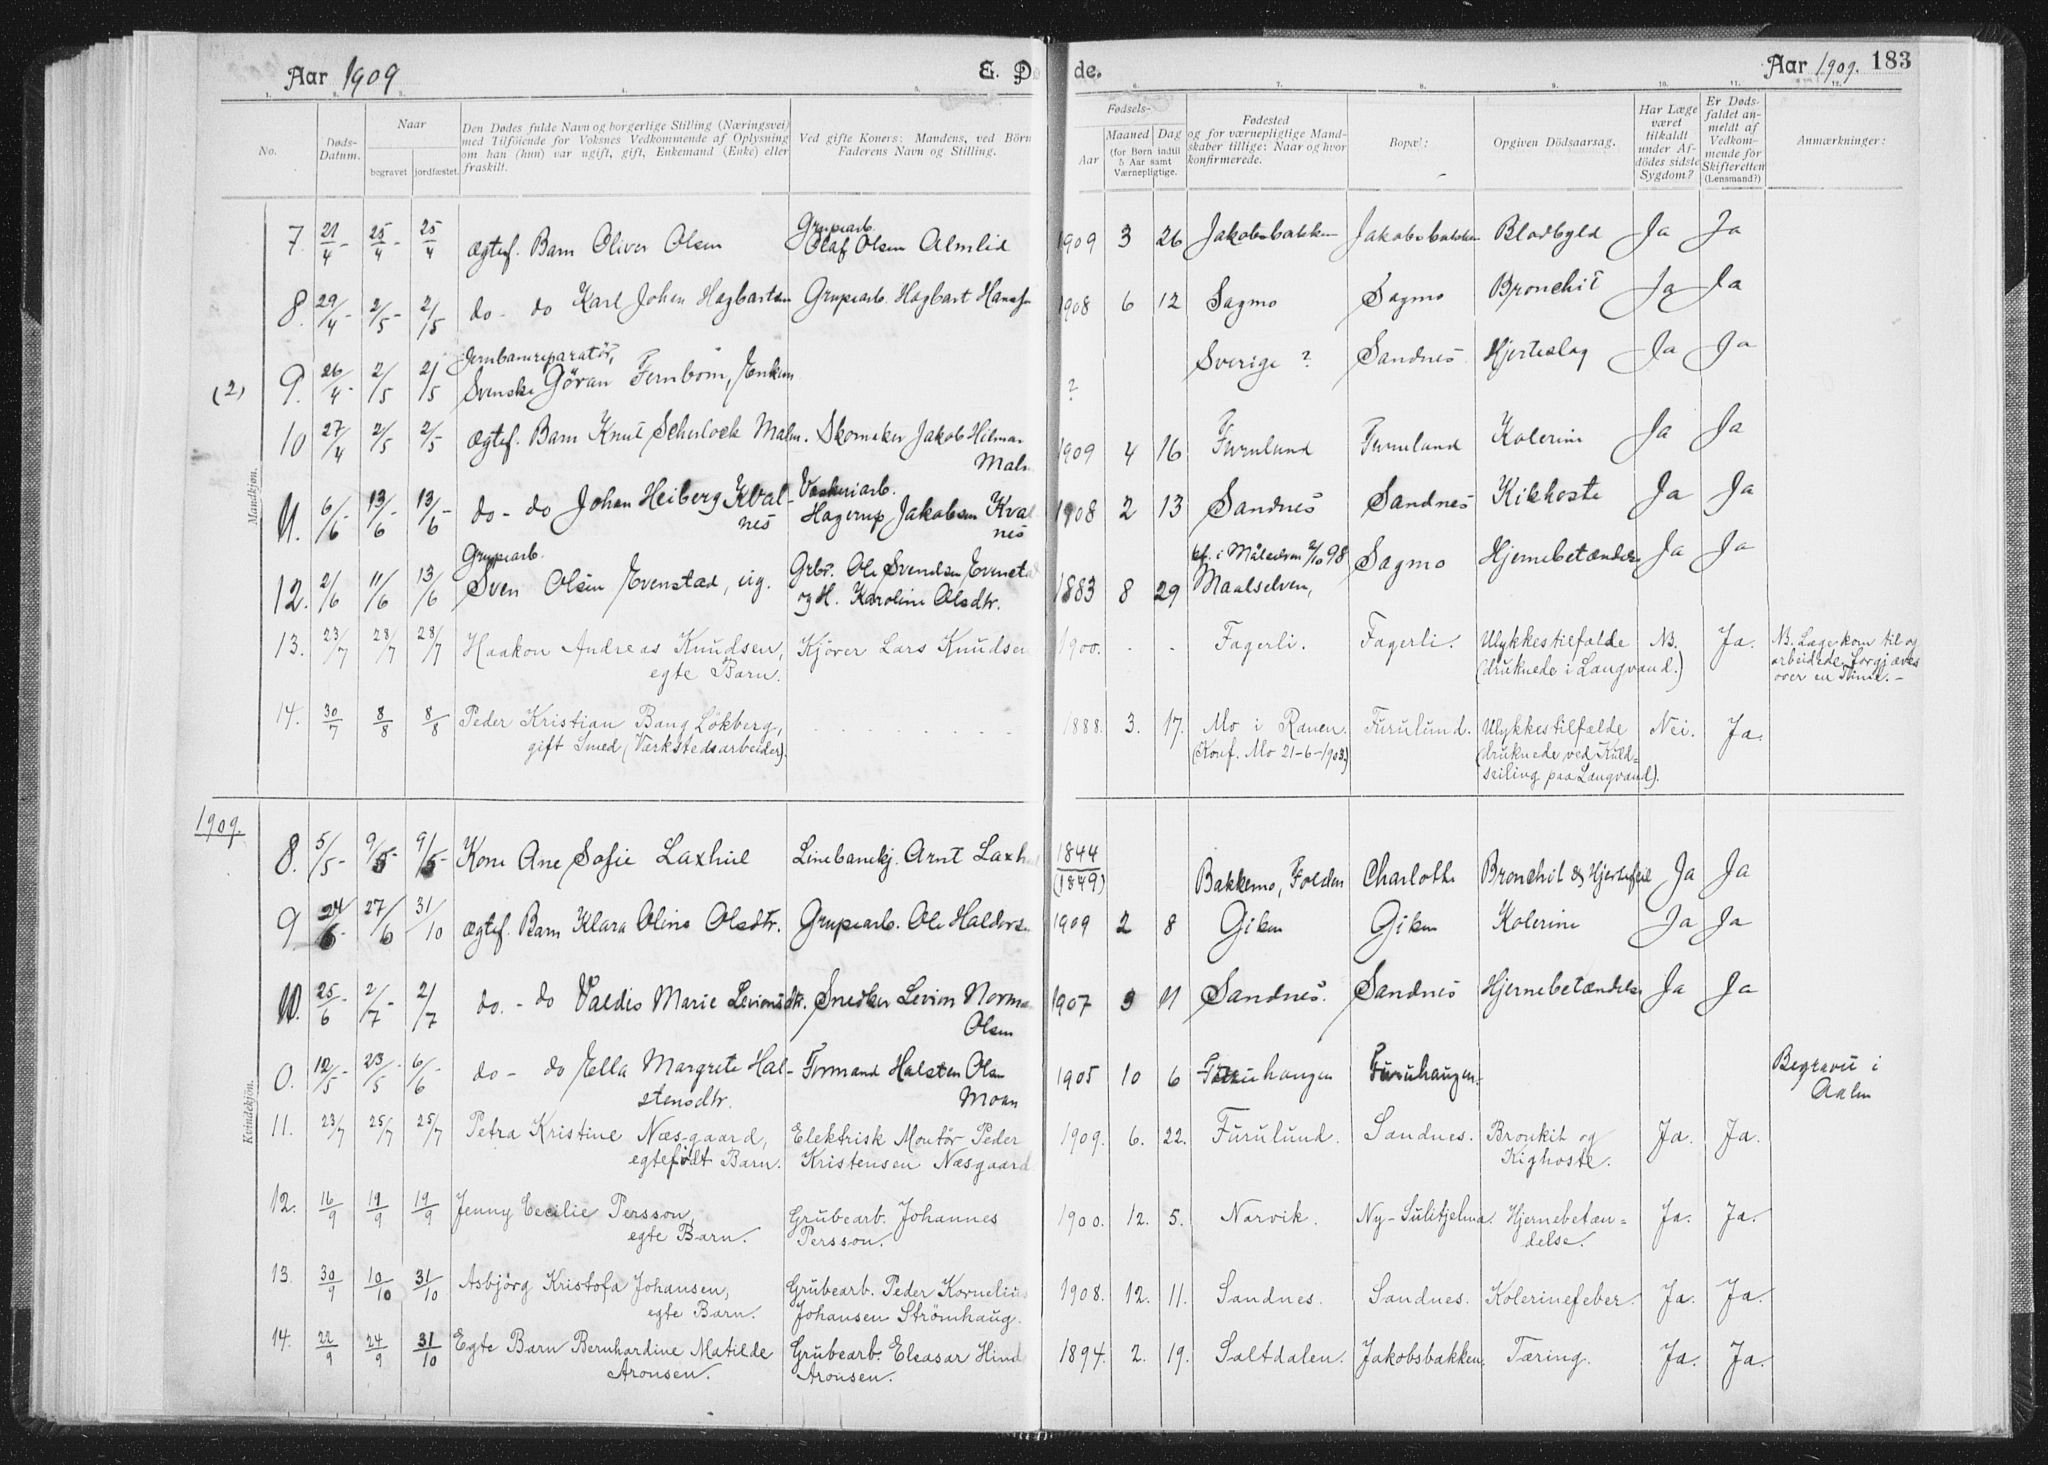 Aar 1909
E. Dø
de.
Aar 1909.
183
1.
2.
3.
4.
5.
6.
7.
8.
9.
10.
11.
12.
No.
Døds-
Datum.
Naar
begravet
jordfæstet.
Den Dødes fulde Navn og borgerlige Stilling (Næringsvei)
med Tilføiende for Voksnes Vedkommende af Oplysning
om han (hun) var ugift, gift, Enkemand (Enke) eller
fraskilt.
Ved gifte Koners: Mandens, ved Børn
Faderens Navn og Stilling.
Fødsels-
Aar
Maaned
(for Børn indtil
5 Aar samt
Værnepligtige.
Dag
Fødested
og for værnepligtige Mand-
skaber tillige: Naar og hvor
konfirmerede.
Bopæl:
Opgiven Dödsaarsag.
Har Læge
været
tilkaldt
under Af-
dödes sidste
Sygdom?
Er Døds-
faldet an-
meldt af
Vedkom-
mende for
Skifteretten
(Lensmand?)
Anmærkninger:
Mandkjøn.
7. 21/4 - 25/4 - 25/4 ægtef. Barn Oliver Olsen Grupearb. Olaf Olsen Almlid 1909 3 26 Jakobsbakken Jakobsbakken Blodbyld Ja Ja
8. 29/4 - 2/5 - 2/5 do - do Karl Johan Hagbartsen Grupearb. Hagbart Hansen 1908 6 12 Sagmo Sagmo Bronchit Ja Ja
(2) 9. 26/4 - 2/5 2/5 Jernbanereparatør,
Svenske Göran Fernbom, Enkem ? Sverige ? Sandnes Hjerteslag Ja Ja
10 27/4 2/5 2/5 ægtef. Barn Knut Scherlock Malm. Skomaker Jakob Hilmar
Malm 1909 4 16 Furulund Furulund Kolerine Ja Ja
11. 6/6 - 13/6 - 13/6 - do - do Johan Heiberg Kval-
nes Vaskeriarb.
Hagerup Jakobsen Kval
nes 1908 2 13 Sandnes Sandnes Kikhoste Ja Ja
12. 2/6 11/6 13/6 Grupearb.
Sven Olsen Evenstad, ug. Grbr. Ole Svendsen Evenstad
og H. Karoline Olsdtr. 1883 8 29 kf. i Målselven 2/10 98
Maalselven, Sagmo Hjernebetændelse Ja Ja
13. 23/7 28/7 28/7 Haakon Andreas Knudsen,
egte Barn. Kjörer Lars Knudsen 1900. - - Fagerli. Fagerli. Ulykkestilfælde
(druknede i Langvand.) NB. Ja. NB. Læge kom til og
arbeidede forgjæves
over en Time. -
14. 30/7 8/8 8/8 Peder Kristian Bang Lökberg,
gift Smed (Værkstedsarbeider). 1888. 3. 17. Mo i Ranen.
(Konf. Mo 21-6-1903.) Furulund. Ulykkestilfælde
(druknede ved Kuld-
seiling paa Langvand). Nei. Ja.
1909.
Kvindekjøn.
8. 5/5 - 9/5 - 9/5 - Kone Ane Sofie Laxhul Linebanekj. Arnt Laxhul 1844
(1849) Bakkemo, Folden Charlotta Bronchit & Hjertefeil Ja Ja
9 24/6 - 27/6 31/10 ægtef. Barn Klara Oline Olsdtr. Grupearb. Ole Haldorsen 1909 2 8 Giken Giken Kolerine Ja Ja
10. 25/6 - 2/7 - 2/7 do. - do Valdis Marie Levionsdtr. Snedker Levion Norman
Olsen 1907 3 11 Sandnes. Sandnes Hjernebetændelse Ja Ja
0. 12/5 - 23/5 - 6/6 - do - do Ella Margrete Hal-
stensdtr. Formand Halsten Olsen
Moan 1905 10 6 Furuhaugen Furuhaugen. Begravet i
Aalen
11. 23/7 25/7 25/7 Petra Kristine Næsgaard,
egtefødt Barn. Elektrisk Montör Peder
Kristensen Næsgaard 1909. 6. 22. Furulund. Sandnes. Bronkit og
Kighoste. Ja. Ja.
12. 16/9 19/9 19/9 Jenny Cecilie Persson,
egte Barn. Grubearb. Johannes
Persson. 1900. 12. 5. Narvik. Ny-Sulitjelma. Hjernebetæn-
delse. Ja. Ja.
13. 30/9 10/10 31/10 Asbjörg Kristofa Johansen,
egte Barn. Grubearb. Peder Kornelius
Johansen Strömhaug. 1908. 12. 11. Sandnes. Sandnes. Kolerinefeber. Ja. Ja.
14. 22/9 24/9 31/10 Egte Barn Bernhardine Matilde
Aronsen. Grubearb. Eleasar Hind
Aronsen. 1894. 2. 19. Saltdalen. Jakobsbakken. Tæring. Ja. Ja.